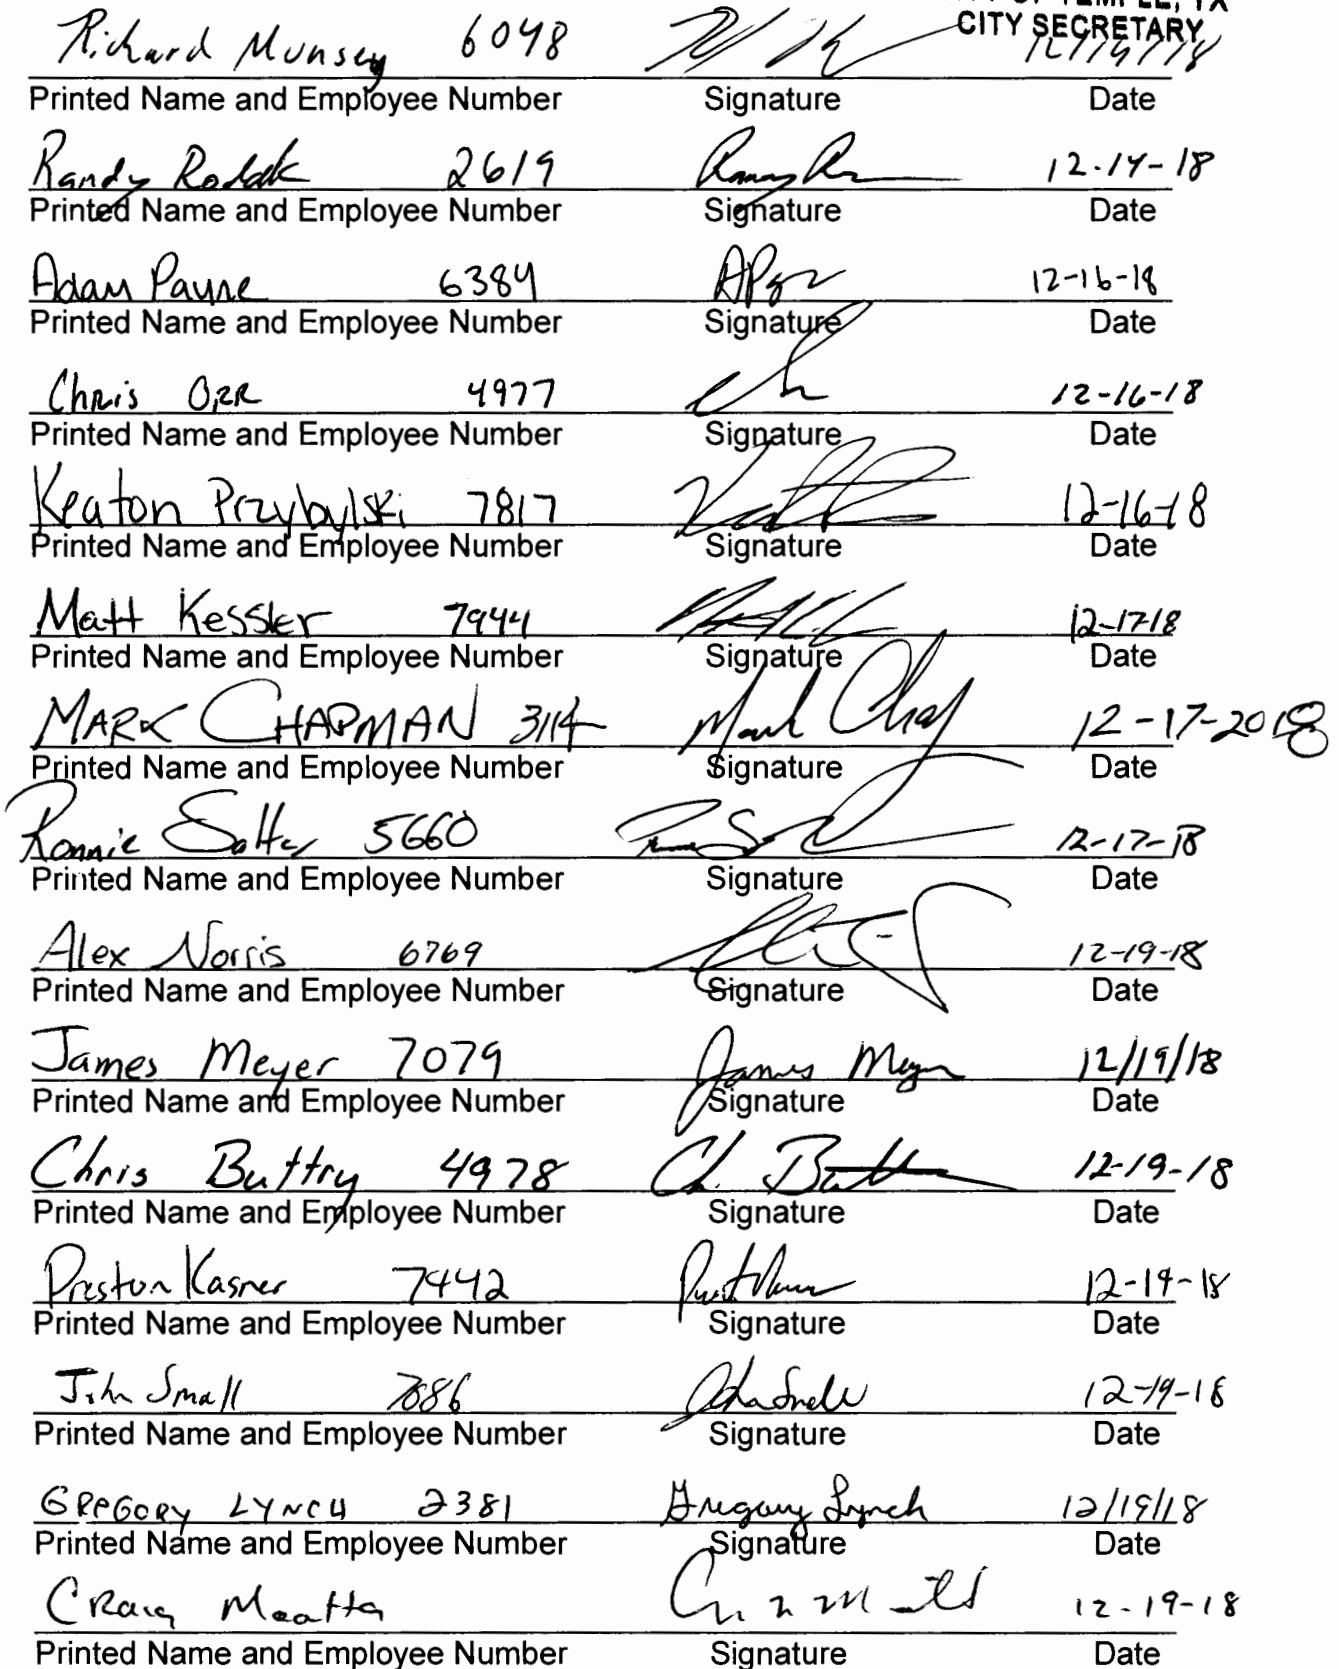 OF TEMPLE, TX
CITY SECRETARY
Richard Munsey 6048 12/14/18
Printed Name and Employee Number Signature Date
Randy 2619 12-14-18
Printed Name and Employee Number Signature Date
Adam Payne 6384 12-16-18
Printed Name and Employee Number Signature Date
Chris ORR 4977 12-16-18
Printed Name and Employee Number Signature Date
Keaton Przybylski 7817 12-16-18
Printed Name and Employee Number Signature Date
Matt Kessler 7944 12-17-18
Printed Name and Employee Number Signature Date
MARK CHAPMAN 3114 Mark Chap 12-17-2018
Printed Name and Employee Number Signature Date
Ronnie Salter 5660 12-17-18
Printed Name and Employee Number Signature Date
Alex Norris 6769 12-19-18
Printed Name and Employee Number Signature Date
James Meyer 7079 James Meyer 12/19/18
Printed Name and Employee Number Signature Date
Chris Buttry 4978 Ch. Butt 12-19-18
Printed Name and Employee Number Signature Date
Preston Kasner 7442 12-19-18
Printed Name and Employee Number Signature Date
John Small 7886 John Small 12-19-18
Printed Name and Employee Number Signature Date
GREGORY LYNCH 2381 Gregory Lynch 12/19/18
Printed Name and Employee Number Signature Date
Craig Maatta 12-19-18
Printed Name and Employee Number Signature Date